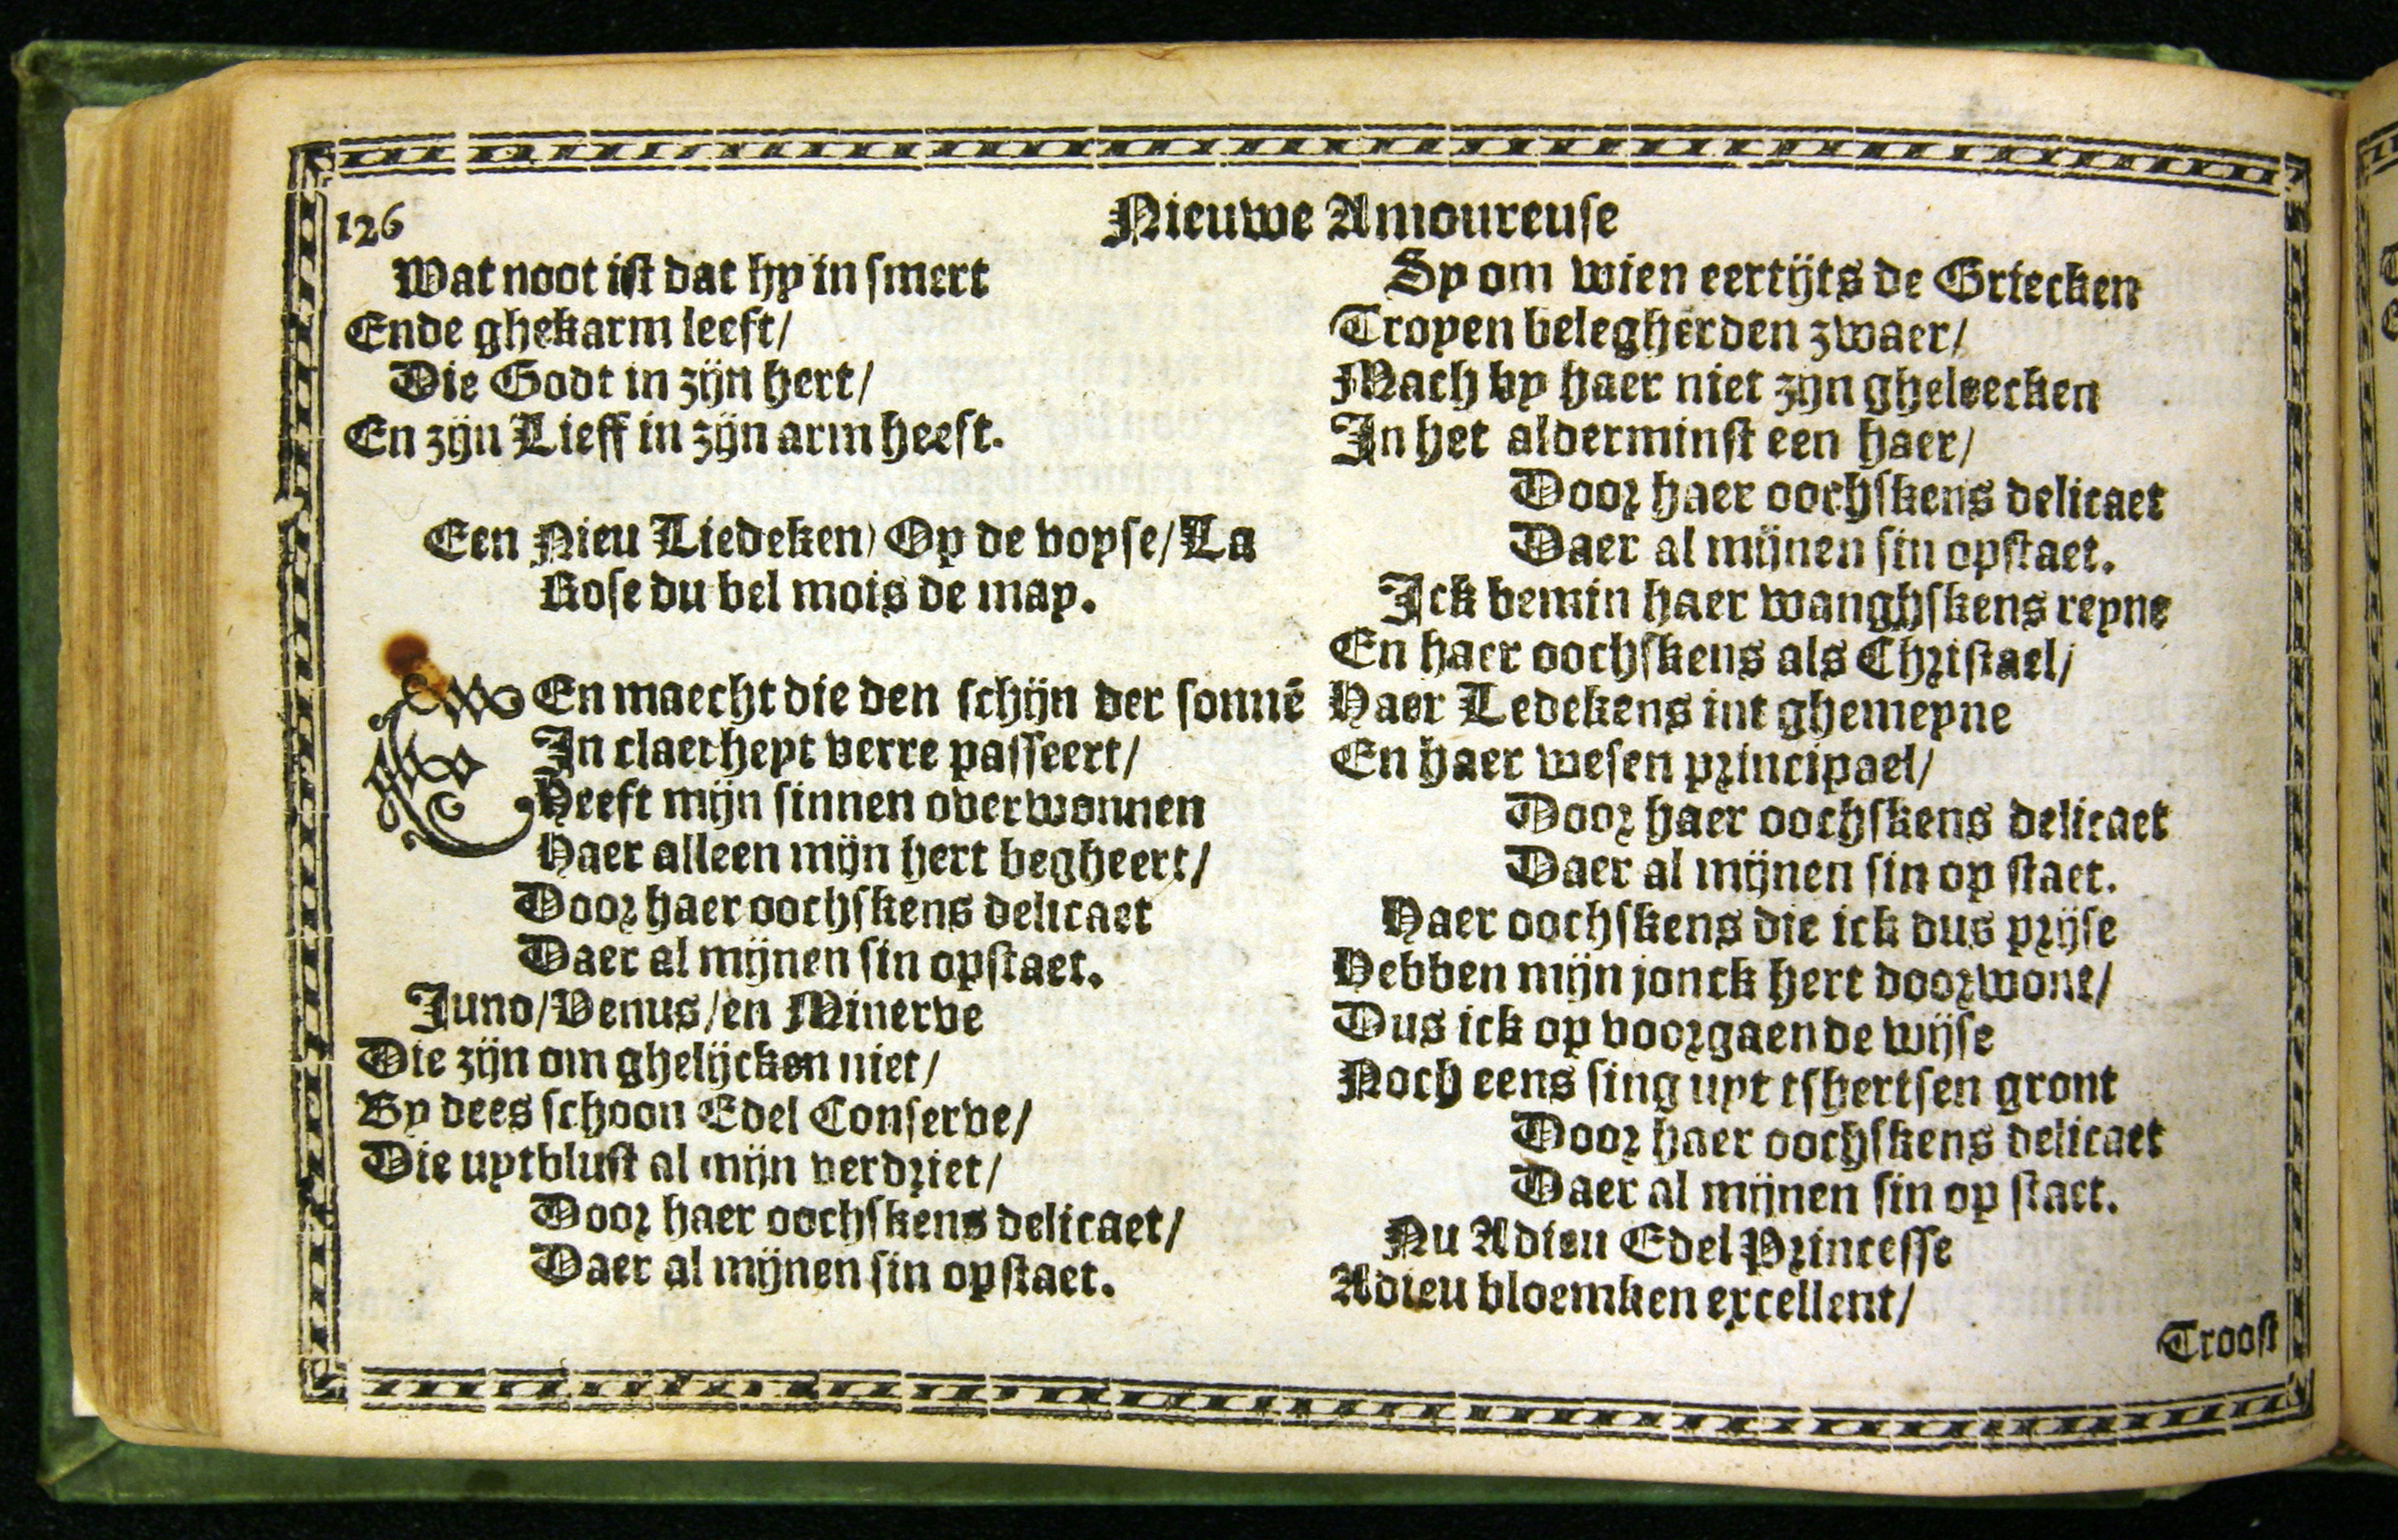 126
Nieuwe Amoureuse
Wat noot ist dat hy in smert
Ende ghekarm leeft/
Die Godt in zijn hert/
En zijn Lieff in zijn arm heeft.
Een Nieu Liedeken/ Op de voyse/ La
Rose du bel mois de may.
EEn maecht die den schijn der sonnē
In claerheyt verre passeert/
Heeft mijn sinnen overwonnen
Haer alleen mijn hert begheert/
Door haer oochskens delicaet
Daer al mijnen sin opstaet.
Juno/ Venus/ en Minerve
Die zijn om ghelijcken niet/
By dees schoon Edel Conserve/
Die uytblust al mijn verdriet/
Door haer oochskens delicaet/
Daer al mijnen sin opstaet.
Sy om wien eertijts de Griecken
Troyen belegherden zwaer/
Mach by haer niet zijn gheleecken
In het alderminst een haer/
Door haer oochskens delicaet
Daer al mijnen sin opstaet.
Ick bemin haer wanghskens reyne
En haer oochskens als Christael/
Haer Ledekens int ghemeyne
En haer wesen principael/
Door haer oochskens delicaet
Daer al mijnen sin op staet.
Haer oochskens die ick dus prijse
Hebben mijn jonck hert doorwont/
Dus ick op voorgaende wijse
Noch eens sing uyt tshertsen gront
Door haer oochskens delicaet
Daer al mijnen sin op staet.
Nu Adieu Edel Princesse
Adieu bloemken excellent/
Troost